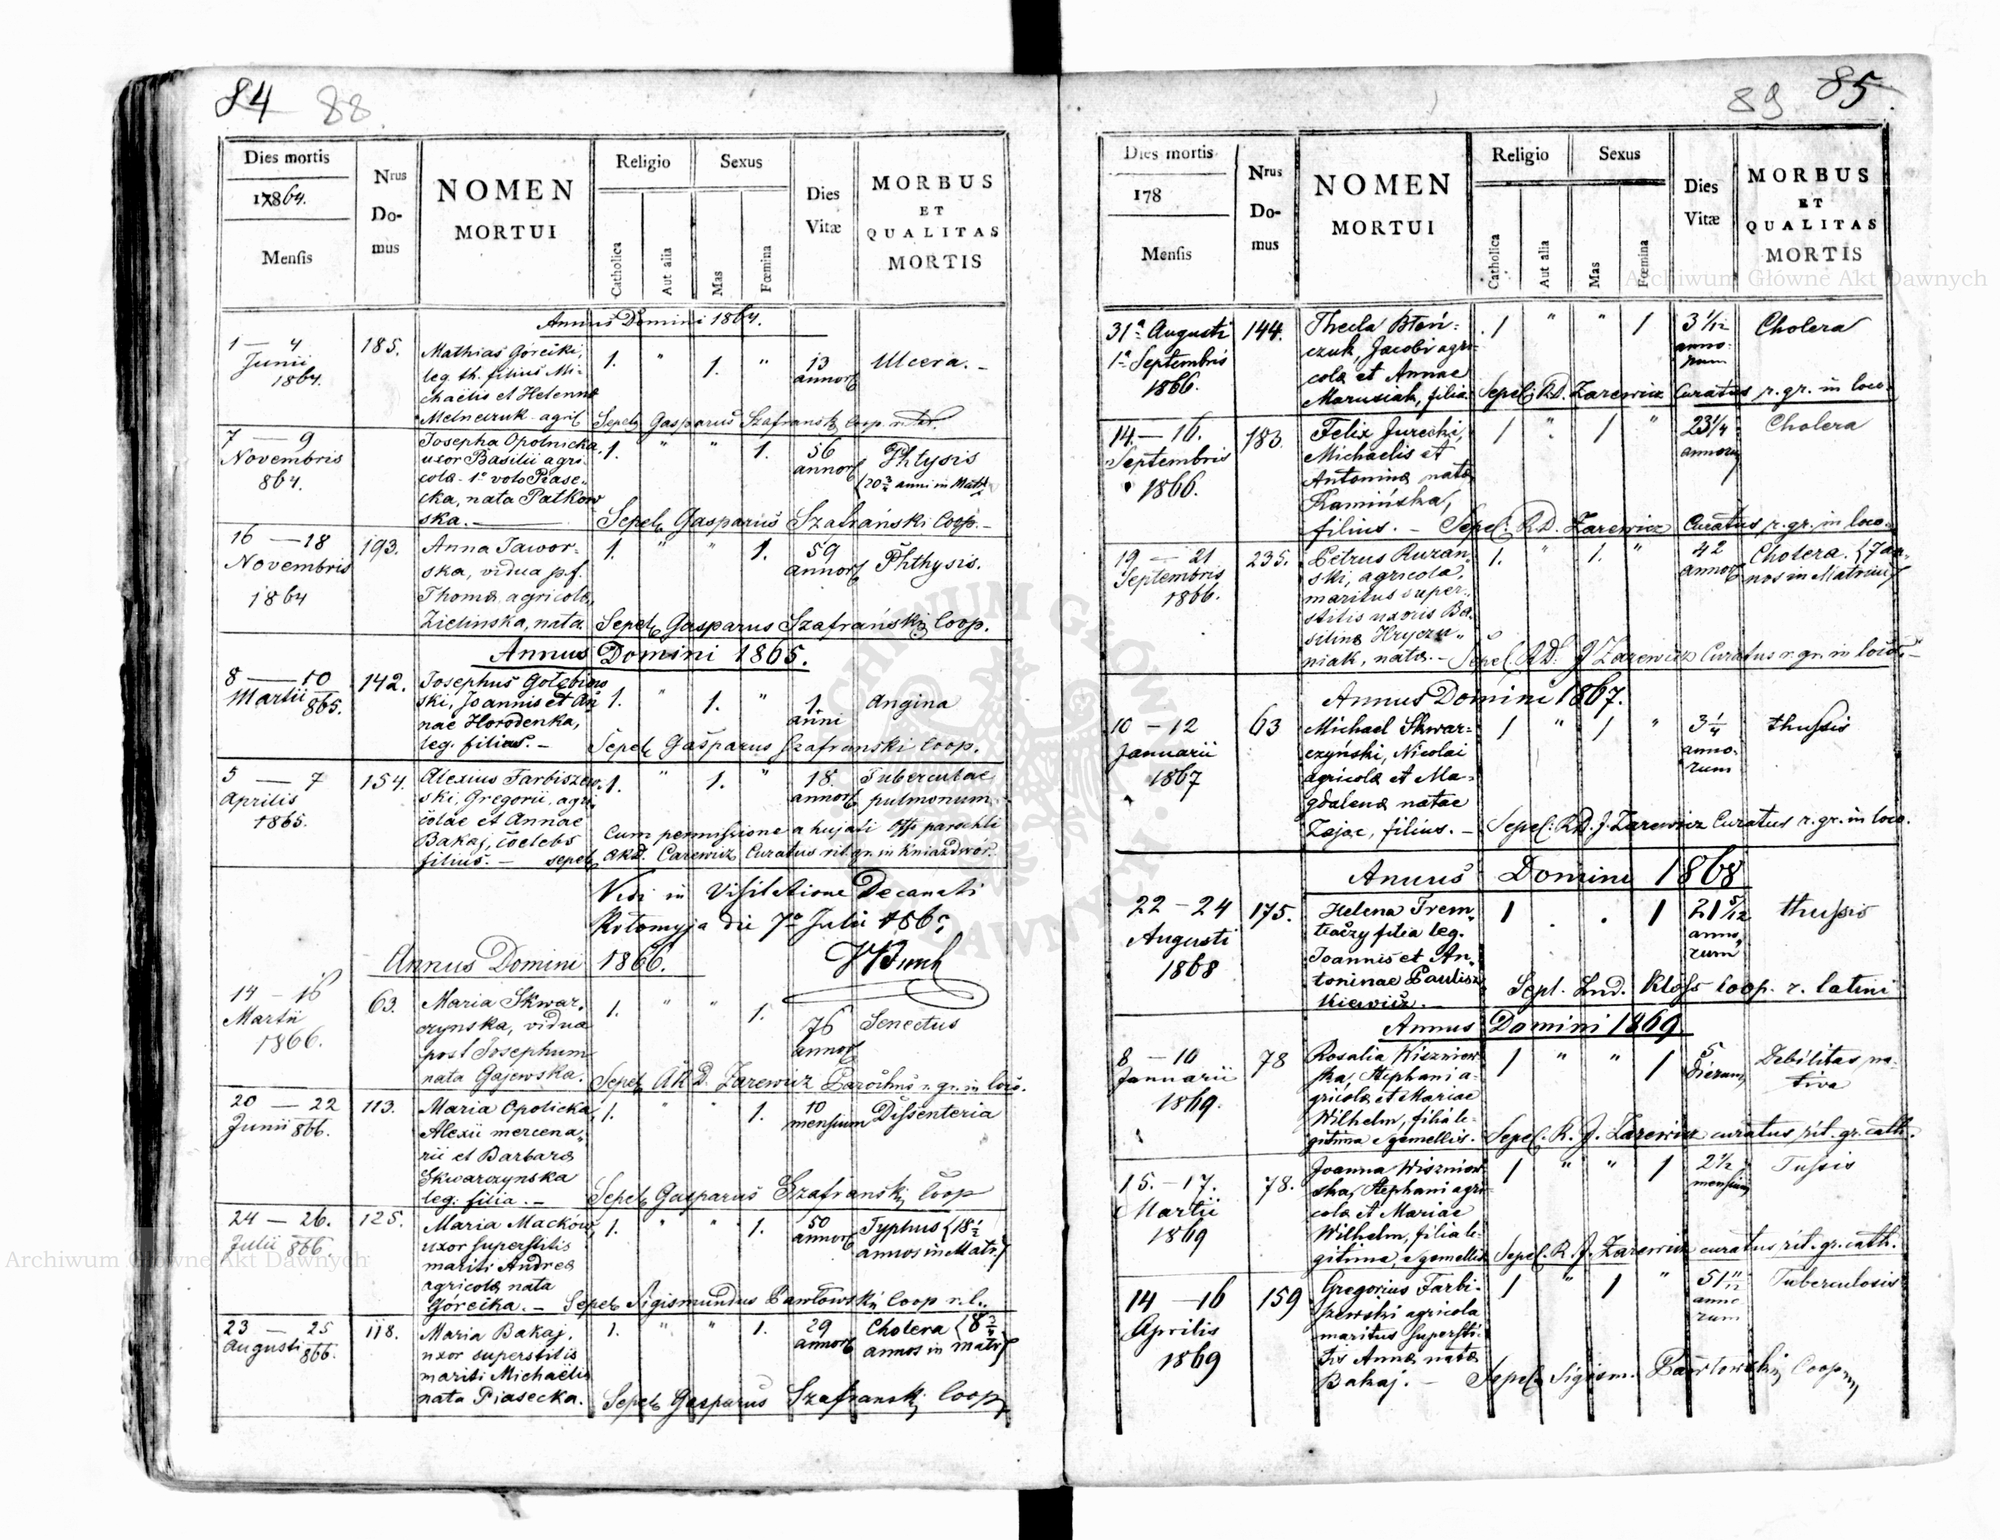 84 88
Dies mortis
17864.
Mensis
Nrus
Do-
mus
NOMEN
MORTUI
Religio
Catholica
Aut alia
Sexus
Mas
Fœmina
Dies
Vitæ
MORBUS
ET
QUALITAS
MORTIS
Annus Domini 1864.
1 — 4
Junii
1864.
185.
Mathias Górecki,
leg. th. filius Mi-
chaëlis et Helenna
Melneczuk agric
1. " 1. "
13
annor
Ulcera. -
Sepel. Gasparus Szafrański Coop.
7 — 9
Novembris
864.
Josepha Opolnicka
uxor Basilii agri
cola 1º voto Piase-
cka, nata Patkow
ska. —
1. " " 1.
56
annor
Phtysis
(20 3/4 anni in Matr
Sepel. Gasparus Szafrański Coop. -
16 — 18
Novembris
1864
193.
Anna Jawor-
ska, vidua p.f.
Thoma agricola,
Zielinska, nata
1. " " 1.
59
annor
Phthysis.
Sepel. Gasparus Szafrański Coop.
Annus Domini 1865.
8 — 10
Martii 865.
142.
Josephus Gołębiow
ski, Joannis et An
nae Horodenka,
leg. filius. -
1. " 1. "
1.
anni
Angina
Sepel. Gasparus Szafranski Coop.
5 — 7
Aprilis
1865.
154.
Alexius Farbiszew-
ski, Gregorii, agri
colae et Annae
Bakaj, coelebs
filius. —
1. " 1. "
18.
annor
Tuberculae
pulmonum
Cum permissione a hujati Offo parochli
sepel. ARD. Carewicz Curatus rit. gr. in Kniazdwor.
Vidi in Visitatione Decanali
Kołomyja die 7ª Julii 1865
Annus Domini 1866.
14 — 16
Martii
1866.
63.
Maria Skwar-
czynska, vidua
post Josephum
nata Gajewska.
1. " " 1.
76
annor
Senectus
Sepel. ARD. Zarewicz Parochus r. gr. in loco.
20 — 22
Junii 866.
113.
Maria Opolicka
Alexii mercena-
rii et Barbara
Skwarczynska
leg: filia. -
1. " " 1.
10
mensium
Dissenteria
Sepel. Gasparus Szafranski Coop
24 — 26.
Julii 866.
125.
Maria Macków,
uxor superstitis
mariti Andrea
agricola nata
Górecka. -
1. " " 1.
50
annor
Typhus (18 1/2
annos in Matr.)
Sepel. Sigismundus Pawłowski Coop r.l.
23 — 25
Augusti 866.
118.
Maria Bakaj,
uxor superstitis
mariti Michaëlis
nata Piasecka.
1. " " 1.
29
annor
Cholera (8 3/4
annos in matr)
Sepel. Gasparus Szafranski Coop
89 85.
Dies mortis
178
Mensis
Nrus
Do-
mus
NOMEN
MORTUI
Religio
Catholica
Aut alia
Sexus
Mas
Fœmina
Dies
Vitæ
MORBUS
ET
QUALITAS
MORTIS
31ª Augusti
1ª Septembris
1866.
144.
Thecla Błoń-
czuk, Jacobi agri-
cola et Annae
Marusiak, filia
1 " " 1
3 1/12
anno-
rum
Cholera
Sepel: R.D. Zarewicz Curatus r. gr. in loco.
14. — 16.
Septembris
1866.
183.
Felix Jurecki,
Michaelis et
Antonina nata
Kamińska,
filius. —
1 " 1 "
23 1/4
annorum
Cholera
Sepel: R.D. Zarewicz Curatus r. gr. in loco.
19 — 21
Septembris
1866.
235.
Petrus Ruzan-
ski, agricola,
maritus super-
stitis uxoris Ba-
silina Hryczu-
niak, nata. -
1. " 1. "
42
annor
Cholera. (7 an-
nos in Matrim)
Sepel. R.D. J Zarewicz Curatus r. gr. in loco. -
Annus Domini 1867.
10 — 12
Januarii
1867
63
Michael Skwar-
czyński, Nicolai
agricola et Ma-
gdalena natae
Zajac, filius. -
1 " 1 "
3 1/4
anno-
rum
thussis
Sepel: R.D. J. Zarewicz Curatus r. gr. in loco.
Annus Domini 1868
22 — 24
Augusti
1868
175.
Helena Trem-
tiaczy filia leg.
Joannis et An-
toninae Paulisz
kiewicz. —
1 . . 1
21 5/12
anno-
rum
thussis
Sepl. Lud. Kloss Coop. r. latini
Annus Domini 1869
8 — 10
Januarii
1869.
78
Rosalia Wiszniow
ska, Stephani a-
gricola et Mariae
Wilhelm, filia le-
gitima e gemellis.
1 " " 1
5
dierum
Debilitas na-
tiva
Sepel. R. J. Zarewicz curatus rit. gr. cath.
15. — 17.
Martii
1869
78.
Joanna Wiszniow
ska, Stephani agri
cola et Mariae
Wilhelm, filia le-
gitima, e gemellis
1 " " 1
2 1/2
mensium
Tussis
Sepel. R. J. Zarewicz curatus rit. gr. cath.
14 — 16
Aprilis
1869
159
Gregorius Farbi-
szewski agricola
maritus supersti-
tis Anna nata
Bakaj. —
1 " 1 "
51 11/12
anno
rum
Tuberculosis
Sepel. Sigism. Pawłowski Coop
Archiwum Główne Akt Dawnych
Archiwum Główne Akt Dawnych
ARCHIWUM GŁÓWNE AKT DAWNYCH